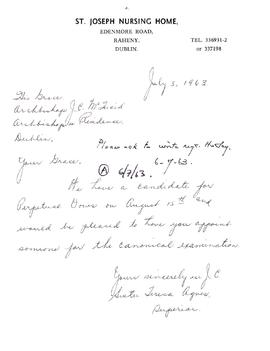 ST. JOSEPH NURSING HOME,
EDENMORE ROAD,
RAHENY,
DUBLIN.
TEL. 336931-2
or 337198
July 3, 1963
His Grace,
Archbishop J.C. McQuaid
Archbishop's Residence
Dublin.
Please ask to write
6-7-63.
Your Grace,
(A) 6/7/63.
We have a candidate for
Perpetual Vows on August 15th and
would be pleased to have you appoint
someone for the canonical examination
Yours sincerely in J.C.
Sister Teresa Agnes,
Superior.